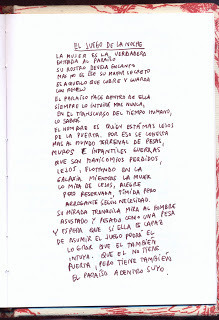 EL JUEGO DE LA NOCHE
LA MUJER ES LA VERDADERA
ENTRADA AL PARAISO
SU ROSTRO DEVELA ENCANTO
MAS NO EL ESO SU MAYOR SECRETO
ES AQUELLO QUE CUBRE Y GUARDA
CON
EL PARAISO YACE DENTRO DE ELLA
SIEMPRE LO INTUYE MAS NUNCA,
EN EL TRANSCURSO DEL TIEMPO HUMANO,
LO SABRÁ
EL HOMBRE ES QUIEN ESTÁ MAS LEJOS
DE LA PUERTA. POR ESO SE
MAS AL MUNDO TERRENAL DE PESAS,
MUROS E INFANTILES GUERRAS
QUE SON MANICOMIOS PERDIDOS,
LEJOS, FLOTANDO EN LA
GALAXIA MIENTRAS LA MUJER
LO MIRA DE LEJOS, ALEGRE
PERO RESERVADA, TÍMIDA PERO
ARROGANTE SEGÚN NECESIDAD.
SU MIRADA TRANQUILA MIRA AL HOMBRE
ASUSTADO Y PESADO COMO UNA PESA
Y ESPERA QUE SI ELLA ES CAPAZ
DE ASUMIR EL JUEGO PODRÁ EL
LOGRAR QUE EL TAMBIEN
INTUYA. QUE EL NO TIENE
PUERTA, PERO TIENE TAMBIÉN
EL PARAISO ADENTRO SUYO.